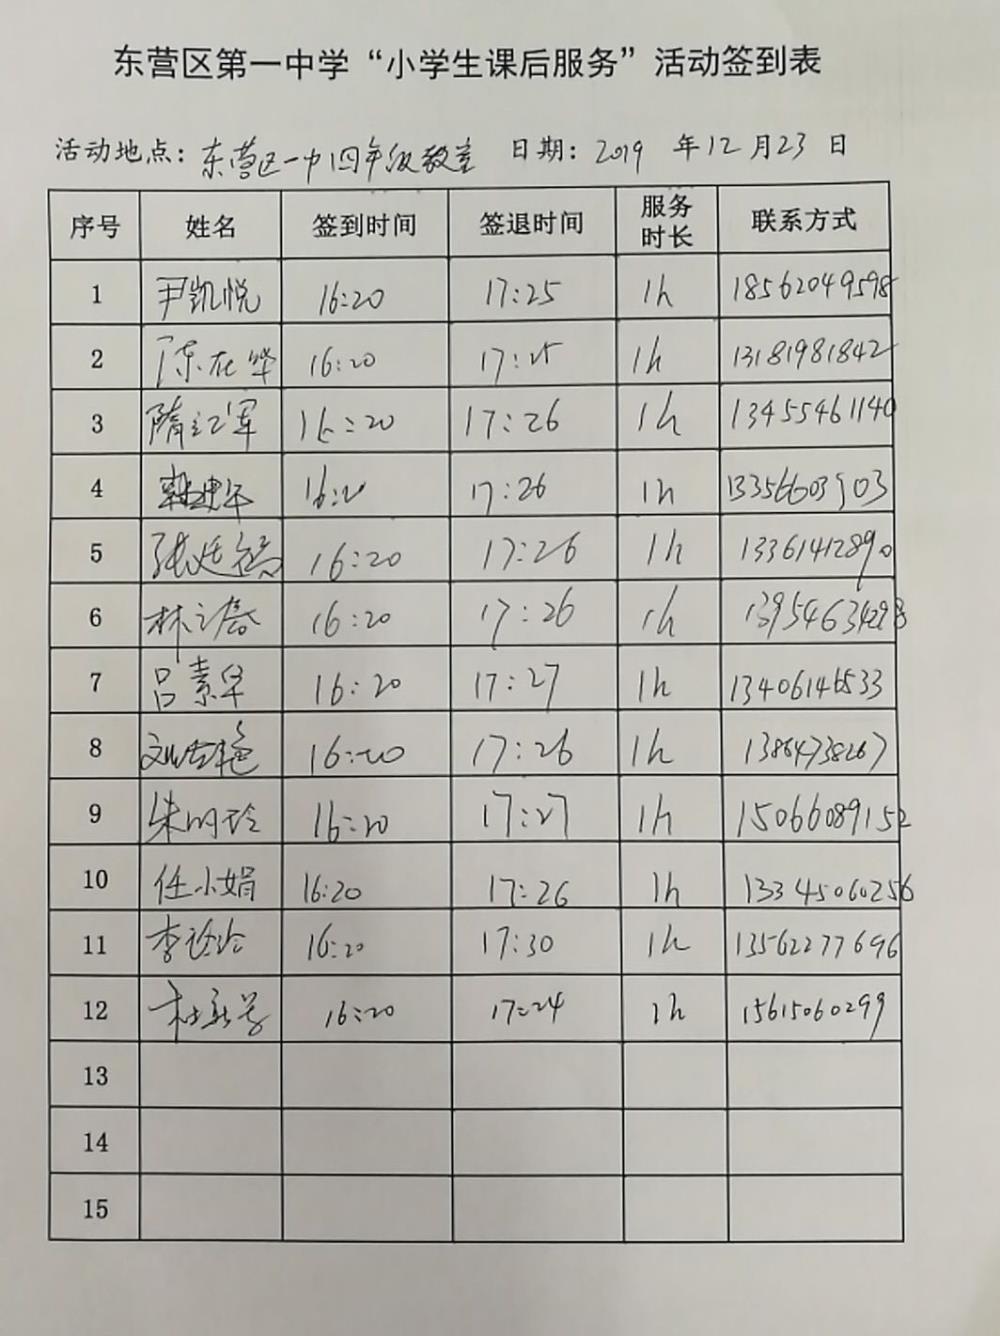 东营区第一中学“小学生课后服务”活动签到表
活动地点：东营区一中四年级教室 日期：2019 年12月23日
序号 姓名 签到时间 签退时间 服务时长 联系方式
1 尹凯悦 16:20 17:25 1h 18562049598
2 陈在华 16:20 17:25 1h 13181981842
3 隋江军 16:20 17:26 1h 13455461140
4 16:20 17:26 1h 13356603903
5 张廷 16:20 17:26 1h 13361412890
6 林 16:20 17:26 1h 13954634298
7 吕素华 16:20 17:27 1h 13406146533
8 16:20 17:26 1h 13864738267
9 朱明玲 16:20 17:27 1h 15066089152
10 任小娟 16:20 17:26 1h 13345060256
11 李 16:20 17:30 1h 13562277696
12 杜 16:20 17:24 1h 15615060299
13
14
15